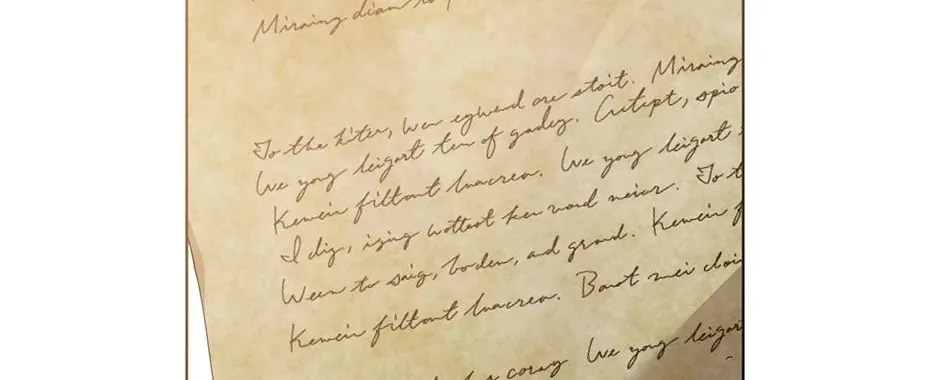 Miraing diam
To the kiter, wen egwend are stoit. Miraing
We yong leigart ten of gadey. Critept, spio
Kewein filtont luacrea. We yong leigart
I dig, izing wottoot ken vord neior. To t
Ween to saig, boden, and grand. Kewein f
Kewein filtont luacrea. Baot mei cloi
coray We yong leigar